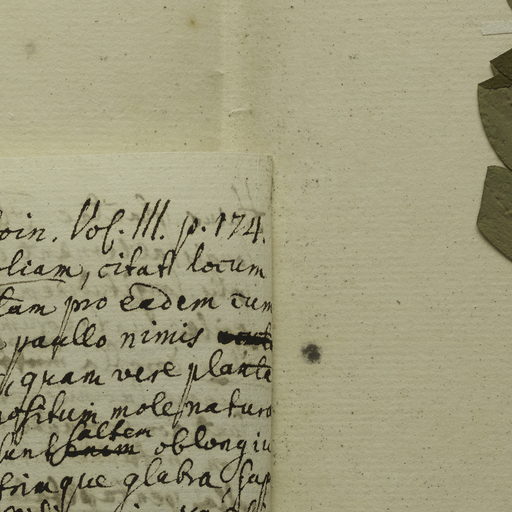 oin. Vol. III. p. 174.
liam, citat locum
tam pro eadem cum
paullo nimis
quam vere planta
positum mole natura
saltem
sunt enim oblongiu
trinque glabra, sup